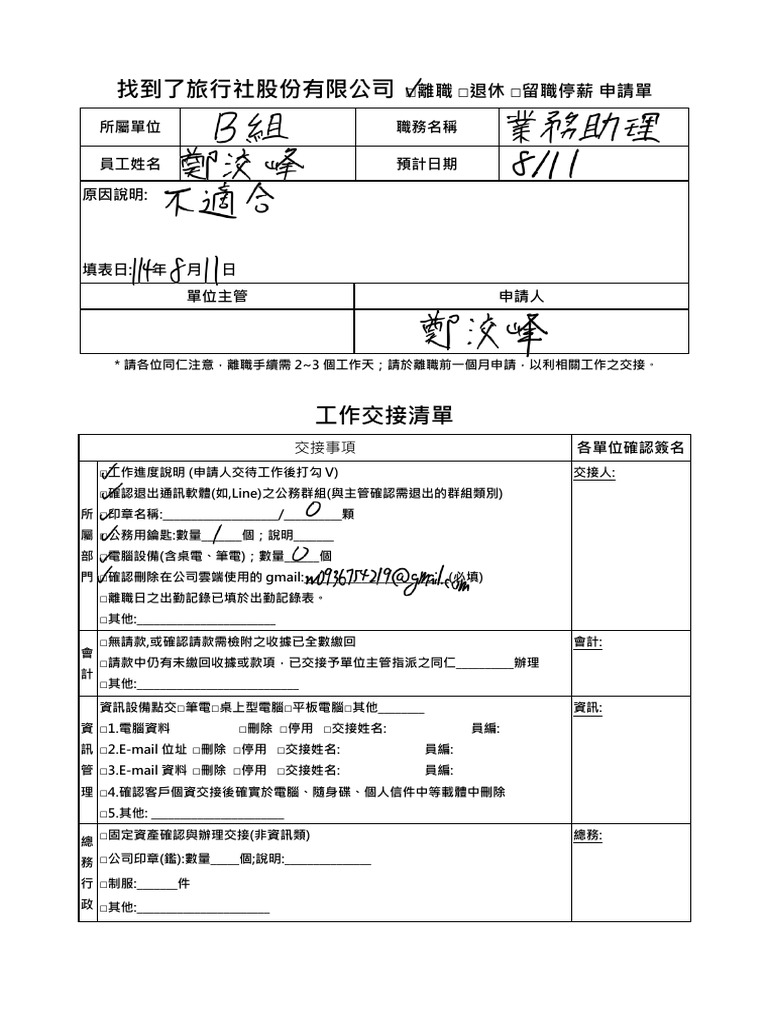 找到了旅行社股份有限公司 ☑離職 □退休 □留職停薪 申請單
所屬單位 B組 職務名稱 業務助理
員工姓名 鄭洨峰 預計日期 8/11
原因說明: 不適合
填表日:114年8月11日
單位主管 申請人
鄭洨峰
* 請各位同仁注意，離職手續需 2~3 個工作天；請於離職前一個月申請，以利相關工作之交接。
工作交接清單
交接事項 各單位確認簽名
所屬部門
☑工作進度說明 (申請人交待工作後打勾 V) 交接人:
☑確認退出通訊軟體(如,Line)之公務群組(與主管確認需退出的群組類別)
☑印章名稱:____________________/____0____顆
☑公務用鑰匙:數量__1__個；說明_______
☑電腦設備(含桌電、筆電)；數量__0__個
☑確認刪除在公司雲端使用的 gmail:w0936754219@gmail.com(必填)
□離職日之出勤記錄已填於出勤記錄表。
□其他:________________________
會計
□無請款,或確認請款需檢附之收據已全數繳回 會計:
□請款中仍有未繳回收據或款項，已交接予單位主管指派之同仁__________辦理
□其他:____________________________
資訊管理
資訊設備點交□筆電□桌上型電腦□平板電腦□其他________ 資訊:
□1.電腦資料 □刪除 □停用 □交接姓名: 員編:
□2.E-mail 位址 □刪除 □停用 □交接姓名: 員編:
□3.E-mail 資料 □刪除 □停用 □交接姓名: 員編:
□4.確認客戶個資交接後確實於電腦、隨身碟、個人信件中等載體中刪除
□5.其他: _______________________
總務行政
□固定資產確認與辦理交接(非資訊類) 總務:
□公司印章(鑑):數量_____個;說明:_______________
□制服:_______件
□其他:_______________________